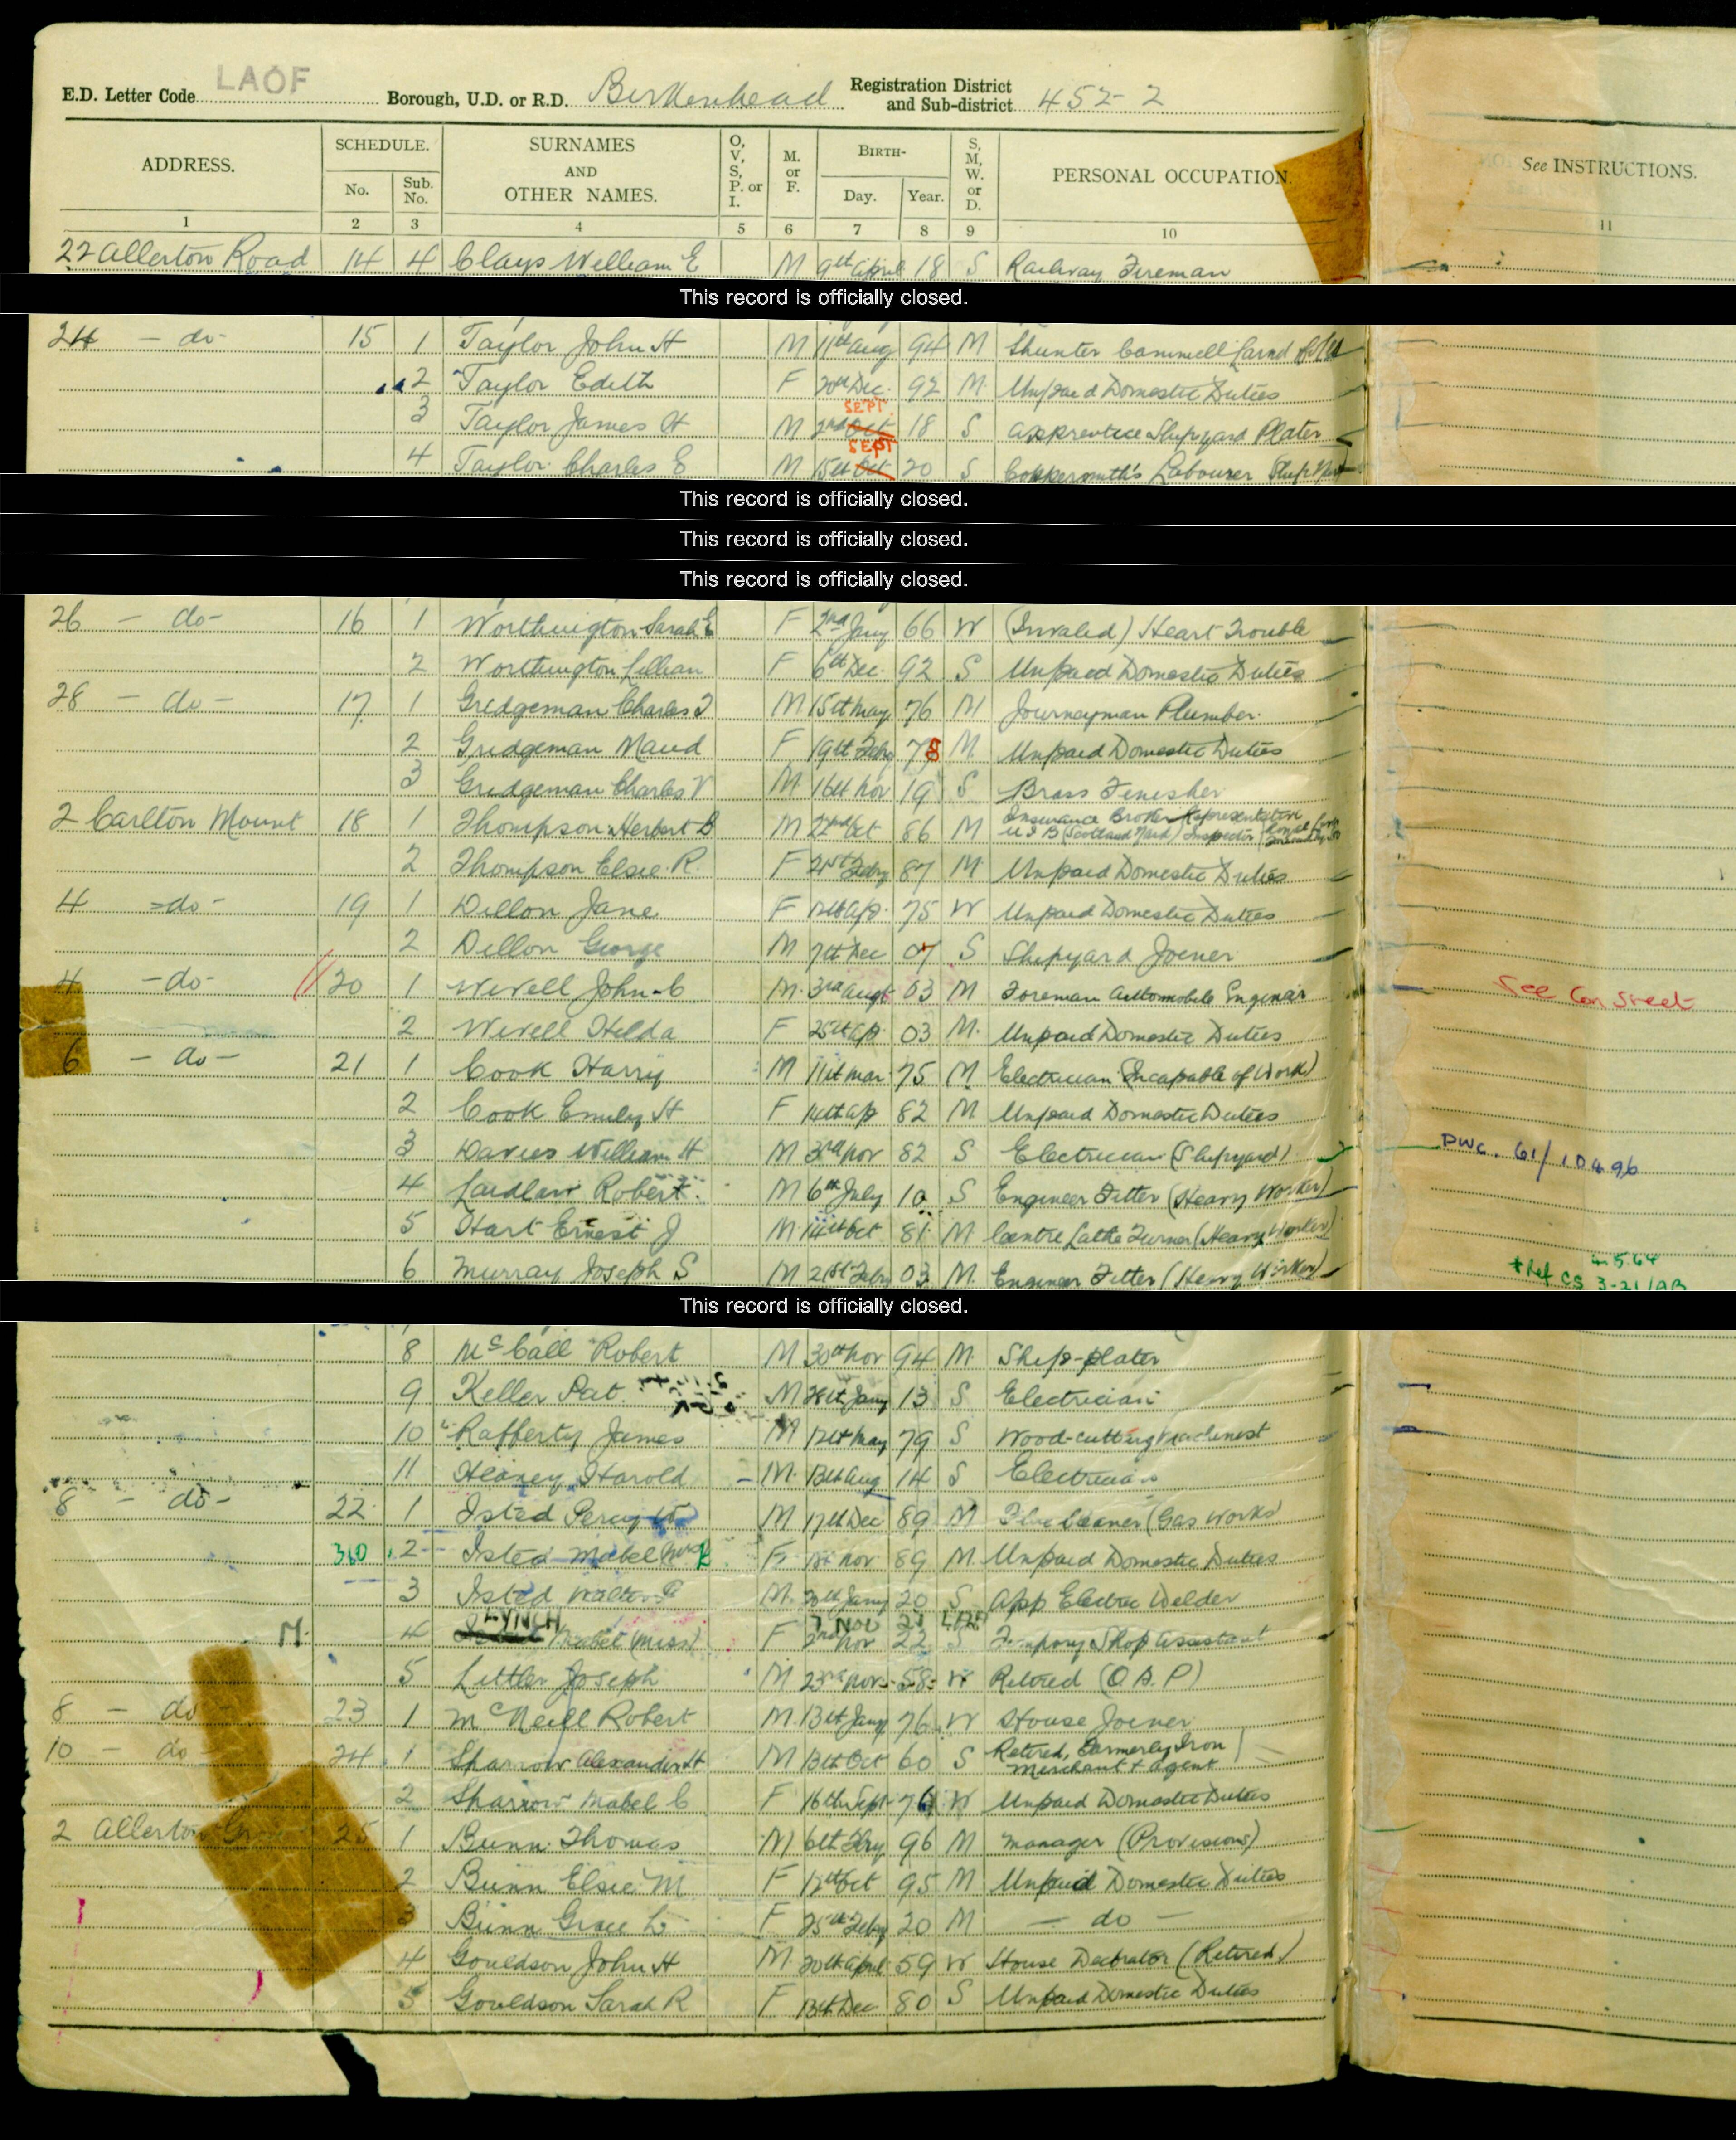 E.D. Letter Code LAOF Borough, U.D. or R.D. Birkenhead Registration District and Sub-district 452-2
ADDRESS. SCHEDULE. No. Sub. No. SURNAMES AND OTHER NAMES. O, V, S, P. or I. M. or F. BIRTH- Day. Year. S, M, W. or D. PERSONAL OCCUPATION. See INSTRUCTIONS.
1 2 3 4 5 6 7 8 9 10 11
22 Allerton Road 14 4 Clays William E M 9th April 18 S Railway Fireman
This record is officially closed.
24 - do- 15 1 Taylor John H M 11th Aug 94 M Shunter Cammell Laird
2 Taylor Edith F 20th Dec. 92 M. Unpaid Domestic Duties
SEPT.
3 Taylor James H M 2nd Oct 18 S Apprentice Shipyard Plater
SEPT
4 Taylor Charles E M 15th Oct 20 S Coppersmith's Labourer
This record is officially closed.
This record is officially closed.
This record is officially closed.
26 - do- 16 1 Worthington Sarah E F 2nd Jany 66 W (Invalid) Heart Trouble
2 Worthington Lillian F 6th Dec. 92 S Unpaid Domestic Duties
28 - do - 17 1 Gridgeman Charles M 15th May 76 M Journeyman Plumber
2 Gridgeman Maud F 19th Feby 78 M Unpaid Domestic Duties
3 Gridgeman Charles V M 16th Nov 19 S Brass Finisher
2 Carlton Mount 18 1 Thompson Herbert M 22nd Oct 86 M Insurance Broker Representative
(Scotland Yard) Inspector
2 Thompson Elsie. R. F 21st Feby 87 M Unpaid Domestic Duties
4 -do- 19 1 Dillon Jane F Ap. 75 W Unpaid Domestic Duties
2 Dillon George M 7th Dec 07 S Shipyard Joiner
4 -do- 20 1 Wevell John C M. 3rd Augt 03 M Foreman Automobile Engineer See Con Sheet
2 Wevell Hilda F 25th Ap. 03 M. Unpaid Domestic Duties
6 - do - 21 1 Cook Harry M 11th Mar 75 M Electrician (Incapable of Work)
2 Cook Emily H F 14th Ap 82 M. Unpaid Domestic Duties
3 Davies William H M 3rd Nov 82 S Electrician (Shipyard) PWC. 61/10496
4 Laidlaw Robert. M 6th July 10 S Engineer Fitter (Heavy Worker)
5 Hart Ernest J M 14th Oct 81 M Centre Lathe Turner (Heavy Worker)
6 Murray Joseph S M 21st Feby 03 M. Engineer Fitter (Heavy Worker) 4.5.64
*Ref CS 3-21/AB
This record is officially closed.
8 McCall Robert M 30th Nov 94 M. Ship-plater
9 Keller Pat. M 28th Jany 13 S Electrician
10 Rafferty James M 12th May 79 S Wood-cutting Machinest
11 Heaney Harold M. 13th Aug 14 S Electrician
8 - do- 22 1 Isted Percy M 17th Dec 89 M Flue Cleaner (Gas Works)
310 2 Isted Mabel (Mrs) F. 1st Nov 89 M Unpaid Domestic Duties
3 Isted Walter M. 20th Jany 20 S App Electric Welder
LYNCH 7 NOV 21
M. 4 Mabel (Miss) F 2nd Nov 22 S Tempory Shop Assistant
5 Littler Joseph M 23rd Nov. 58 W Retired (O.A.P)
8 - do 23 1 McNeill Robert M. 13th Jany 76 W House Joiner
10 - do 24 1 Sharrow Alexander H M 13th Oct 60 S Retired, Formerly Iron
Merchant + Agent
2 Sharrow Mabel C F 16th Sept 76 W Unpaid Domestic Duties
2 Allerton 25 1 Bunn Thomas M 6th Feby 96 M Manager (Provisions)
2 Bunn Elsie M. F 12th Oct 95 M Unpaid Domestic Duties
3 Bunn Grace L. F 25th Feby 20 M - do -
4 Gouldson John H M. 20th April 59 W House Decorator (Retired)
5 Gouldson Sarah R F 13th Dec 80 S Unpaid Domestic Duties